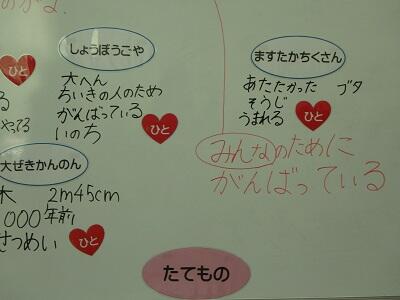 のがよ.
しょうぼうごや
大へん
ちいきの人のため
がんばっている
いのち
ひと
ますたかちくさん
あたたかった ゴタ
そうじ
うまれる
ひと
ひと
る
やってる
みんなのために
がんばっている
大ぜきかんのん
木 2m45cm
000年前
せつめい
ひと
たてもの